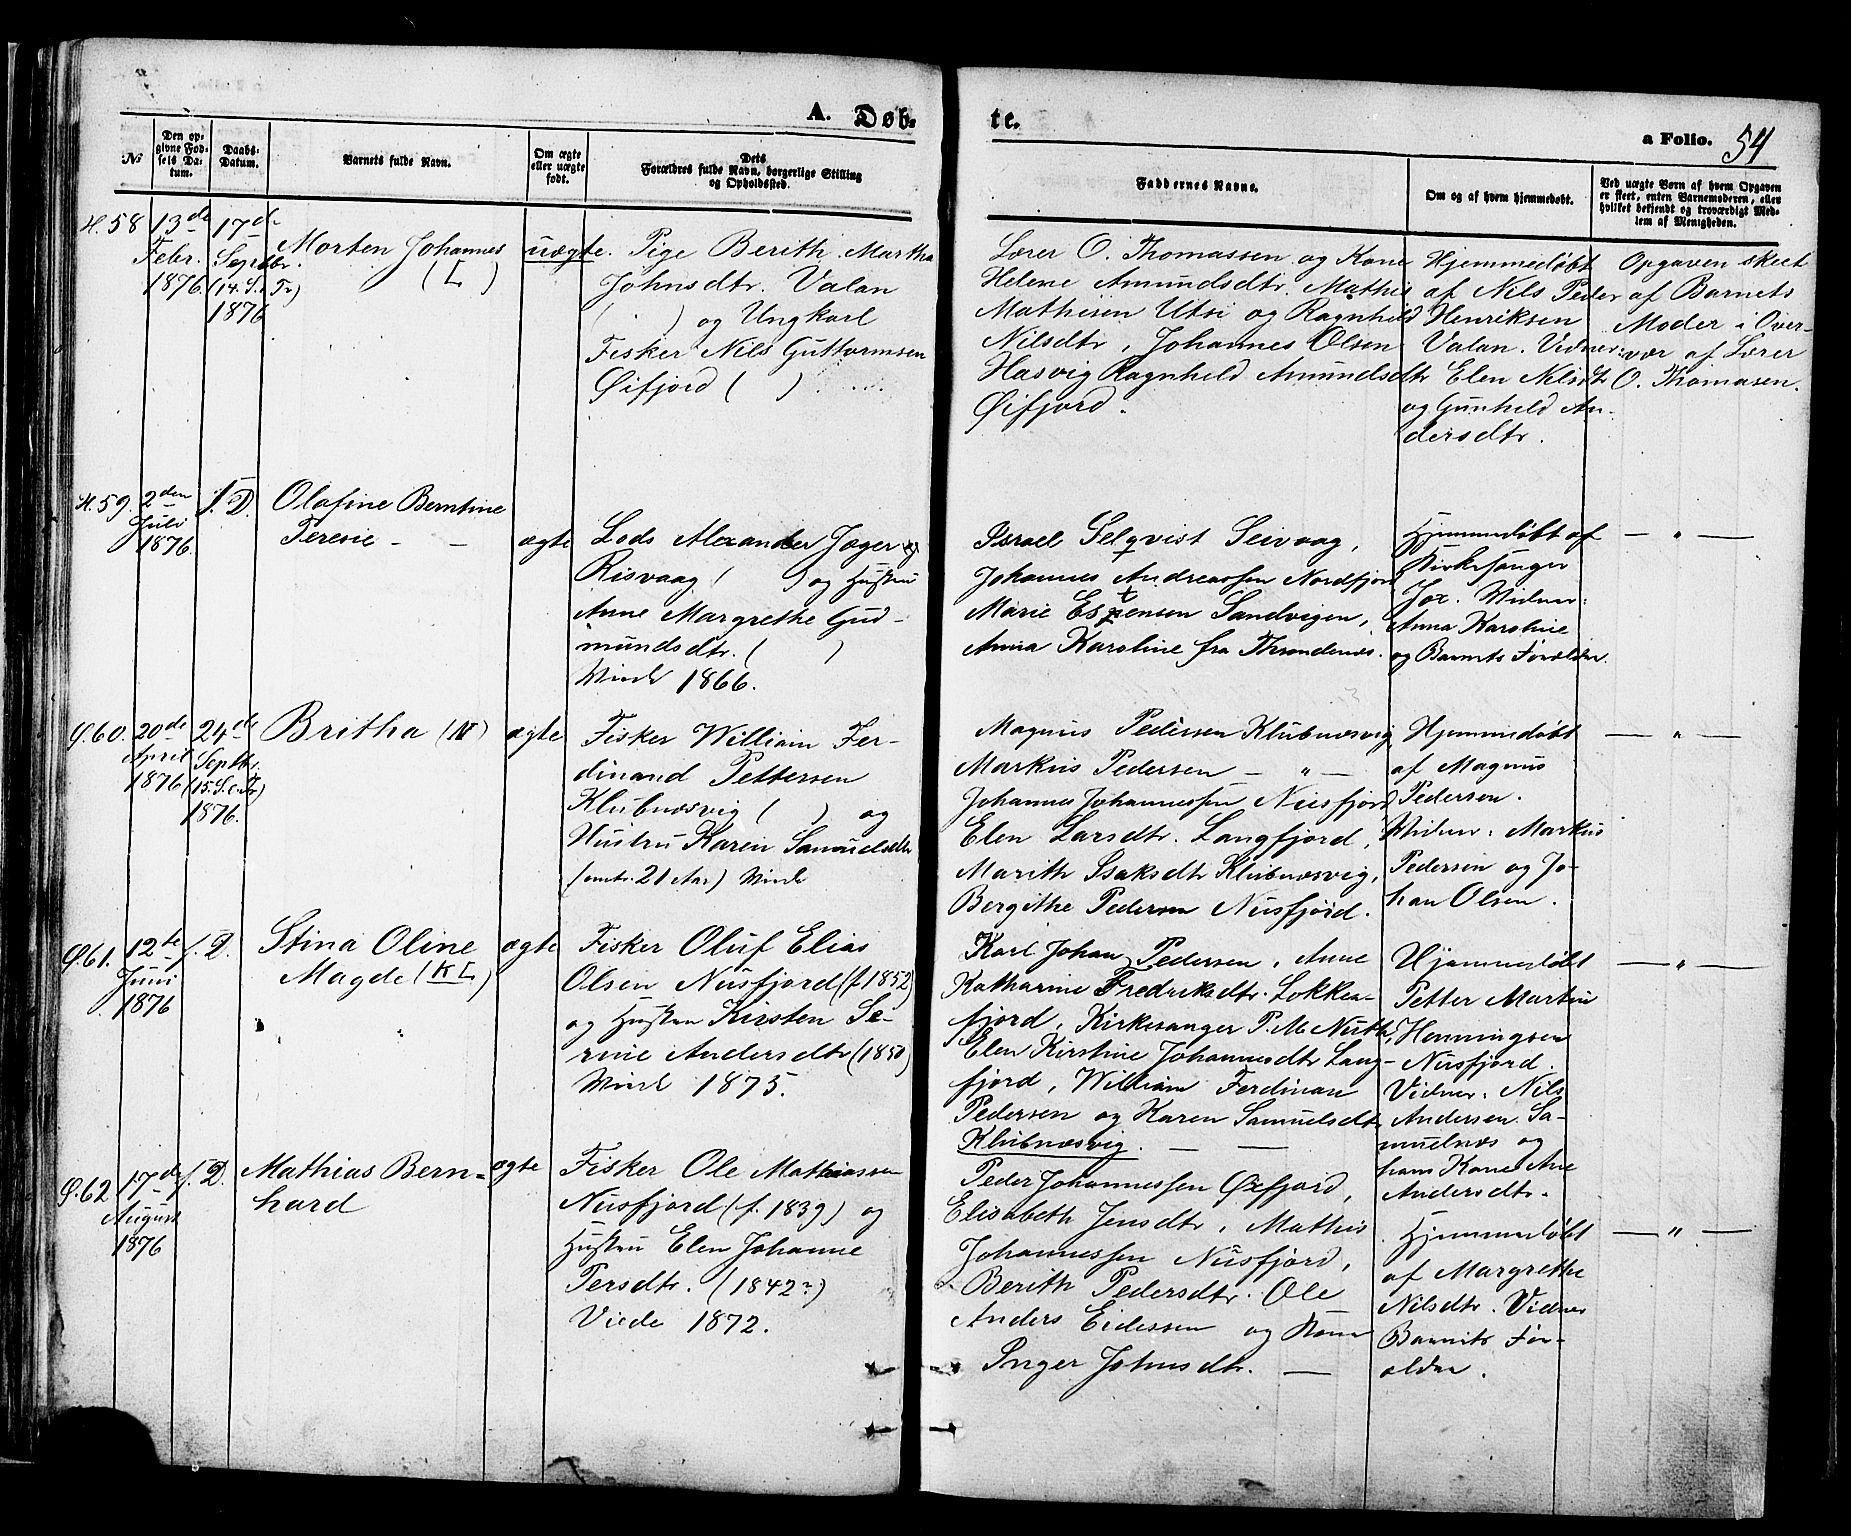 A. Døb-
te.
a Folio. 54
No
Den op-
givne Fød-
sels Da-
tum.
Daabs-
Datum.
Barnets fulde Navn.
Om ægte
eller uægte
født.
Dets
Forældres fulde Navn, borgerlige Stilling
og Opholdssted.
Faddernes Navne.
Om og af hvem hjemmedøbt.
Ved uægte Børn af hvem Opgaven
er skeet, enten Barnemoderen, eller
hvilket bekjendt og troværdigt Med-
lem af Menigheden.
H. 58
13de
Febr.
1876
17de
Septbr.
(14. S. e. Tr)
1876
Morten Johannes
(L)
uægte.
Pige Berith Martha
Johnsdtr. Valan
( ) og Ungkarl
Fisker Nils Guttormsen
Øifjord ( )
Lærer O. Thomassen og Kone
Helene Amundsdtr. Mathis
Mathisen Utsi og Ragnhild
Nilsdtr, Johannes Olsen
Hasvig Ragnhild Amundsdtr
Øifjord.
Hjemmedøbt
af Nils Peder
Henriksen
Valan. Vidner:
Elen Nilsdtr
og Gunhild An-
dersdtr.
Opgaven skeet
af Barnets
Moder i Over-
vær af Lærer
O. Thomasen.
H. 59.
2den
Juli
1876.
s. D.
Olafine Berntine
Teresie - -
ægte
Lods Alexander Jæger
Risvaag ( ) og Hustru
Anne Margrethe Gud-
mundsdtr. ( )
Viede 1866.
Israel Selqvist Seivaag,
Johannes Andreassen Nordfjord
Marie Espensen Sandvigen,
Anna Karoline fra Throndenæs.
Hjemmedøbt af
Kirkesanger
Jox. Vidner:
Anna Karoline
og Barnets Forældre.
— " —
Ø. 60.
20de
April
1876
24de
Septbr.
(15. S. e. Tr)
1876.
Britha (N)
ægte
Fisker William Fer-
dinand Pettersen
Klubnæsvig ( ) og
Hustru Karen Samuelsdtr
(omtr. 21 Aar) Viede
Magnus Pedersen Klubnæsvig
Markus Pedersen — " —
Johannes Johannessen Nusfjord
Elen Larsdtr. Langfjord,
Marith Isaksdtr Klubnæsvig,
Bergithe Pedersen Nusfjord.
Hjemmedøbt
af Magnus
Pedersen.
Vidner: Markus
Pedersen og Jo-
han Olsen.
— " —
Ø. 61.
12te
Juni
1876
s. D.
Stina Oline
Magde (KL)
ægte
Fisker Oluf Elias
Olsen Nusfjord (f. 1852)
og Hustru Kirsten Se-
rine Andersdtr (1850)
Viede 1875.
Karl Johan Pedersen, Anne
Katharine Fredriksdtr. Lokker-
fjord, Kirkesanger P. M. Nuth,
Elen Kirstine Johannesdtr Lang-
fjord, William Ferdinan
Pedersen og Karen Samuelsdtr
Klubnæsvig. — —
Hjemmedøbt
Petter Martin
Henningsen
Nusfjord.
Vidner: Nils
Andersen Sa-
muelnæs og
hans Kone Ane
Andersdtr.
— " —
Ø. 62
17de
August
1876
s. D.
Mathias Bern-
hard
ægte
Fisker Ole Mathiassen
Nusfjord (f. 1839) og
Hustru Elen Johanne
Persdtr. (1842?)
Viede 1872.
Peder Johannessen Øxfjord,
Elisabeth Jensdtr, Mathis
Johannessen Nusfjord,
Berith Pedersdtr. Ole
Anders Eidessen og Kone
Inger Johnsdtr. —
Hjemmedøbt
af Margrethe
Nilsdtr. Vidner
Barnets For-
ældre.
— " —